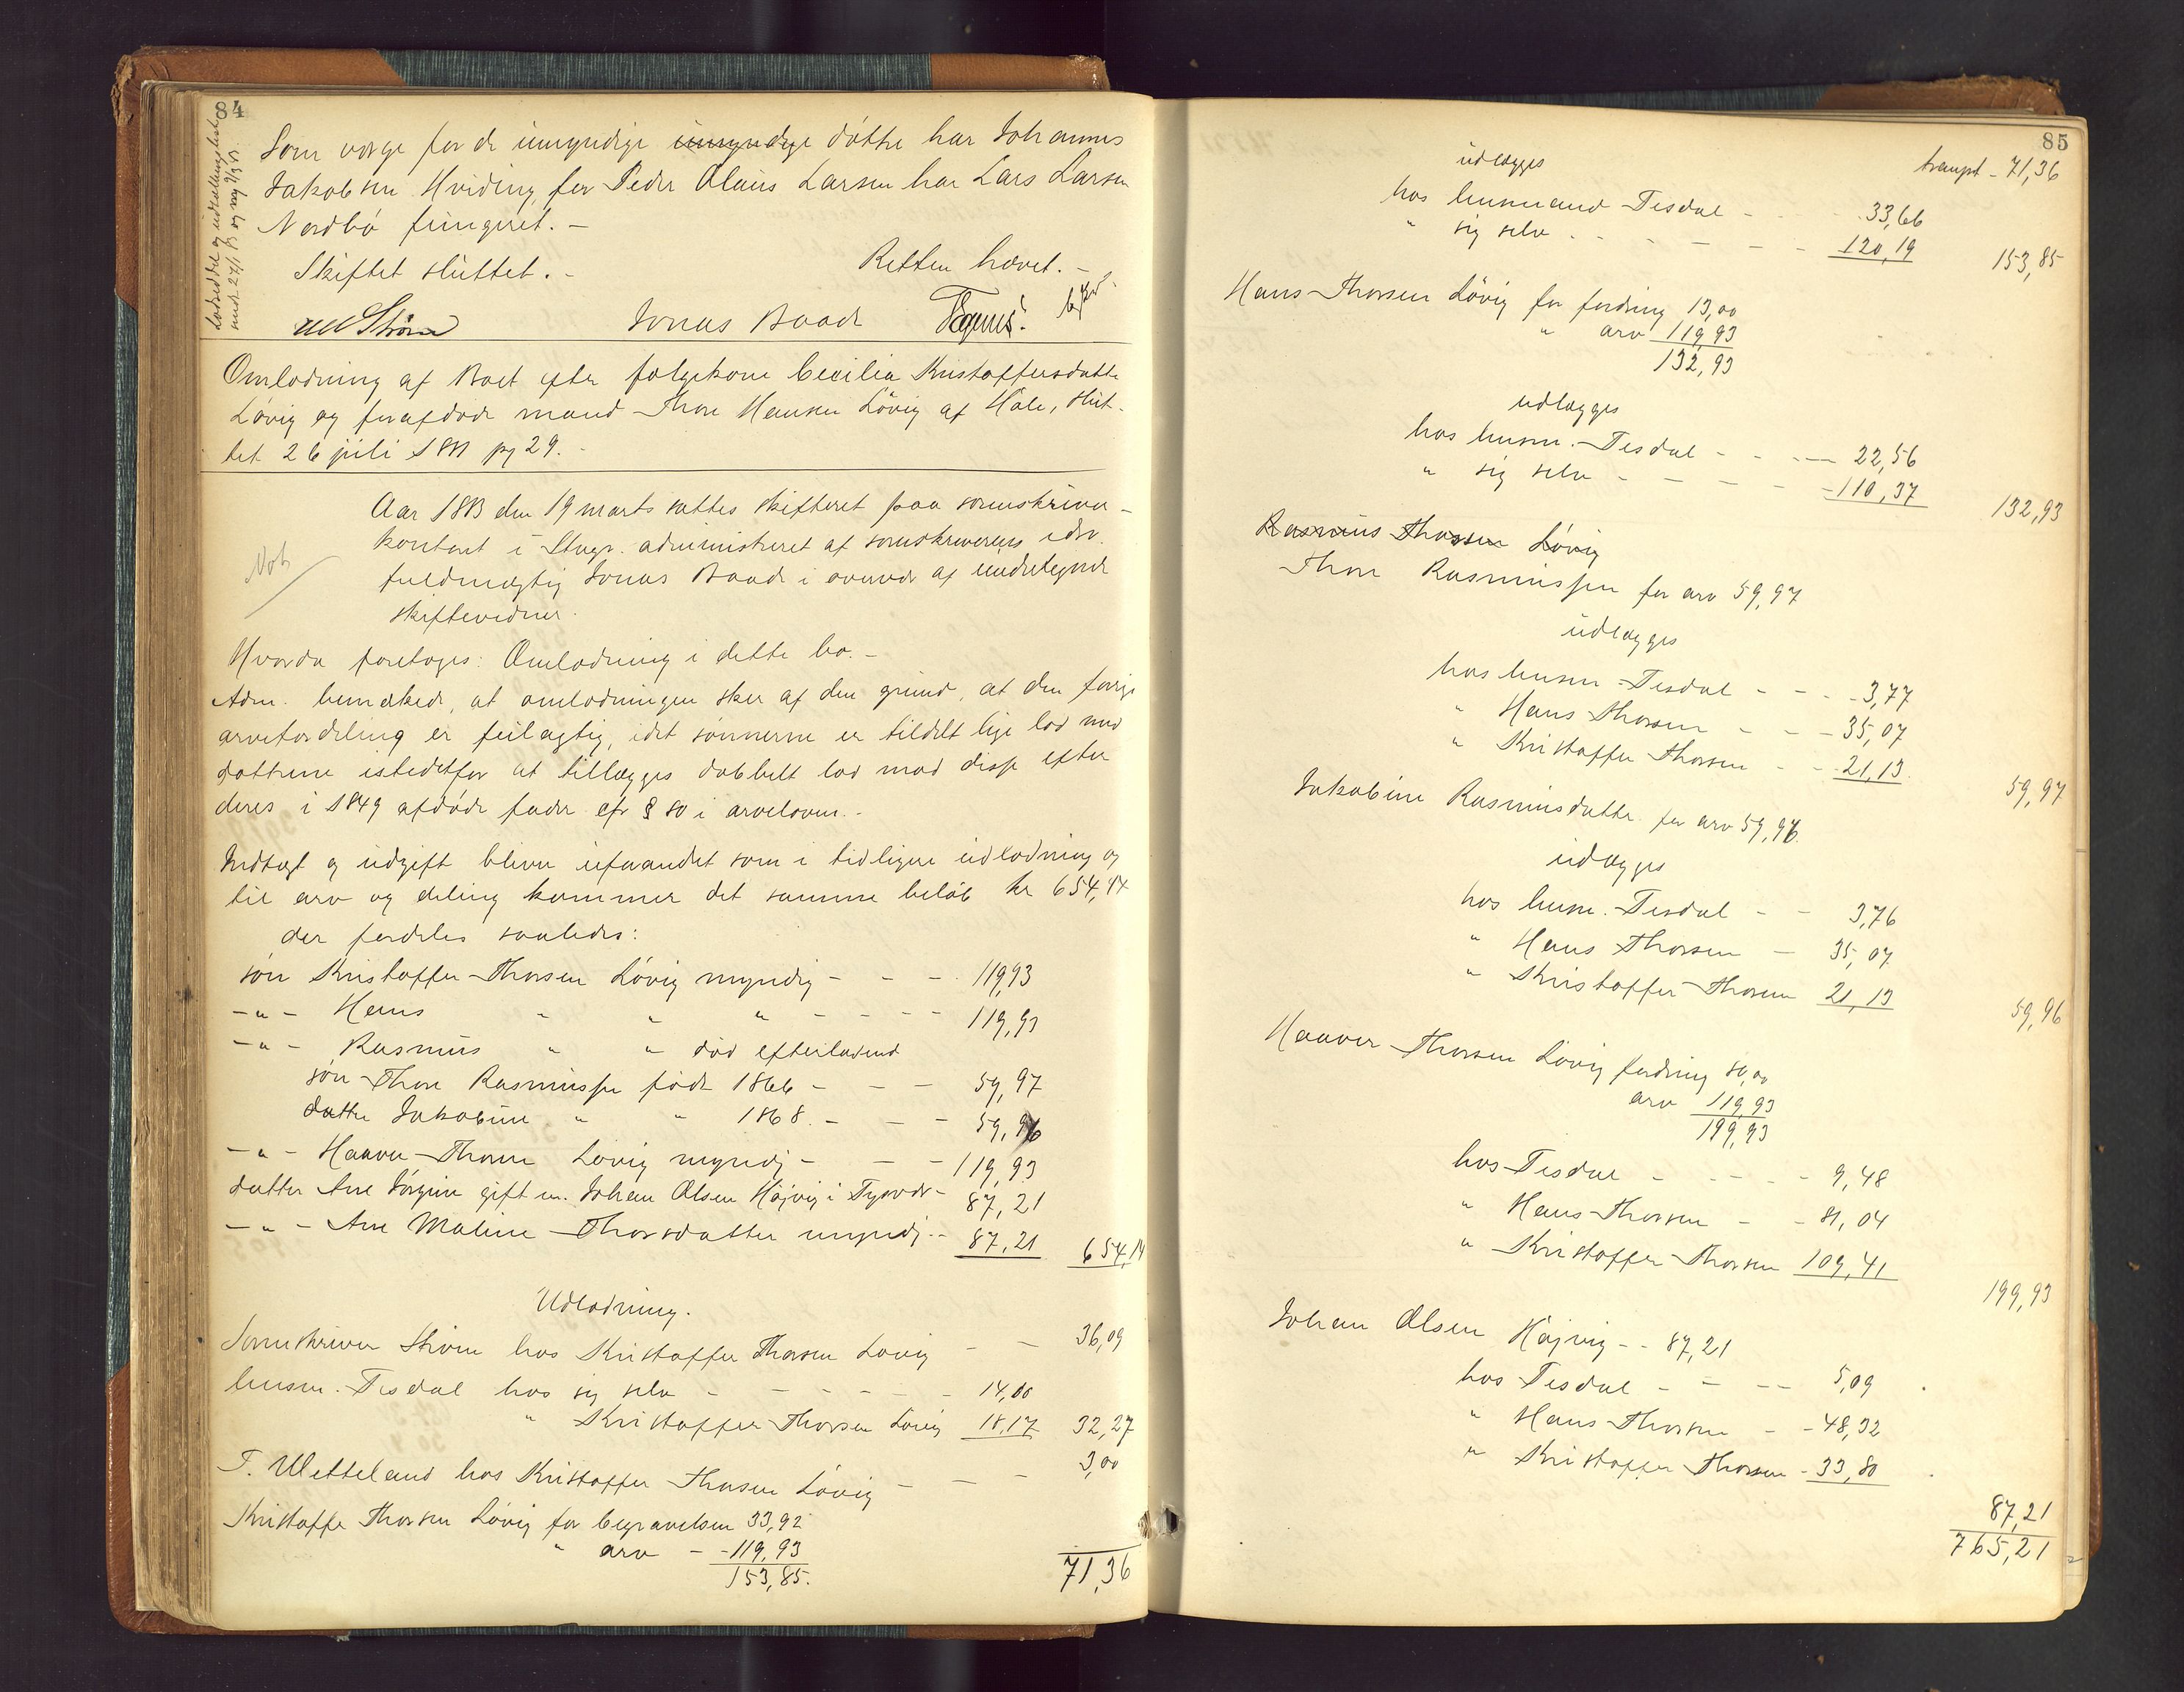 84
Som værge for de umyndige umyndige døttre har Johannes
Jakobsen Hviding, for Peder Olaus Larsen har Lars Larsen
Nordbø fungeret. –
Skiftet sluttet. – Retten hævet. –
Strøm Jonas Baade
Omlodning af Boet efter folgekone Cecilia Kristoffersdatter
Løvig og forafdøde mand Thore Hansen Løvig af Hole, slut-
tet 26 juli 1881 pg 29.
Not
Aar 1883 den 19 marts sattes skifteret paa sorenskriver-
kontoret i Stvgr. administreret af sorenskriverens edsv.
fuldmægtig Jonas Baade i overvær af undertegnede
skiftevidner.
Hvorda foretoges: Omlodning i dette bo. –
Adm. bemærkede, at omlodningen sker af den grund, at den forrige
arvefordeling er feilagtig, idet sønnerne er tildelt lige lod med
døttrene istedetfor at tillægges dobbelt lod mod disse efter
deres i 1849 afdøde fader cfr § 80 i arveloven. –
Indtægt og udgift bliver uforandret som i tidligere udlodning og
til arv og deling kommer det samme beløb kr 654,14
der fordeles saaledes:
søn Kristoffer Thorsen Løvig myndig – – – 119,93
– " – Hans " " " – – – – 119,93
– " – Rasmus " " død efterladende
søn Thore Rasmussen født 1866 – – – 59,97
datter Jakobine " " 1868. – – – 59,96
– " – Haaver Thorsen Løvig myndig – – – 119,93
datter Ane Jørgine gift m. Johan Olsen Højvig i Tysvær – 87,21
– " – Ane Maline Thorsdatter myndig – 87,21 654,14
Udlodning.
Sorenskriver Strøm hos Kristoffer Thorsen Løvig – – 36,09
lensm. Tisdal hos sig selv – – – – – – 14,00
" Kristoffer Thorsen Løvig 18,17 32,27
T. Wetteland hos Kristoffer Thorsen Løvig – – – 3,00
Kristoffer Thorsen Løvig for begravelsen 33,92
" arv – 119,93
153,85. 71,36
85
transpt – 71,36
udlægges
hos lensmand Tisdal – 33,66
" sig selv – – – – – 120,19 153,85
Hans Thorsen Løvig for fordring 13,00
" arv 119,93
132,93
udlægges
hos lensm. Tisdal – – – 22,56
" sig selv – – – – 110,37 132,93
Rasmus Thorsen Løvig
Thore Rasmussen for arv 59,97
udlægges
hos lensm Tisdal – – – 3,77
" Hans Thorsen – – – 35,07
" Kristoffer Thorsen – – 21,13 59,97
Jakobine Rasmusdatter for arv 59,96
udlægges
hos lensm. Tisdal – – 3,76
" Hans Thorsen – 35,07
" Kristoffer Thorsen 21,13 59,96
Haaver Thorsen Løvig fordring 80,00
arv 119,93
199,93
hos Tisdal – – – – 9,48
" Hans Thorsen – – 81,04
" Kristoffer Thorsen 109,41 199,93
Johan Olsen Højvig – – 87,21
hos Tisdal – – – – 5,09
" Hans Thorsen – – 48,32
" Kristoffer Thorsen – 33,80
87,21
765,21